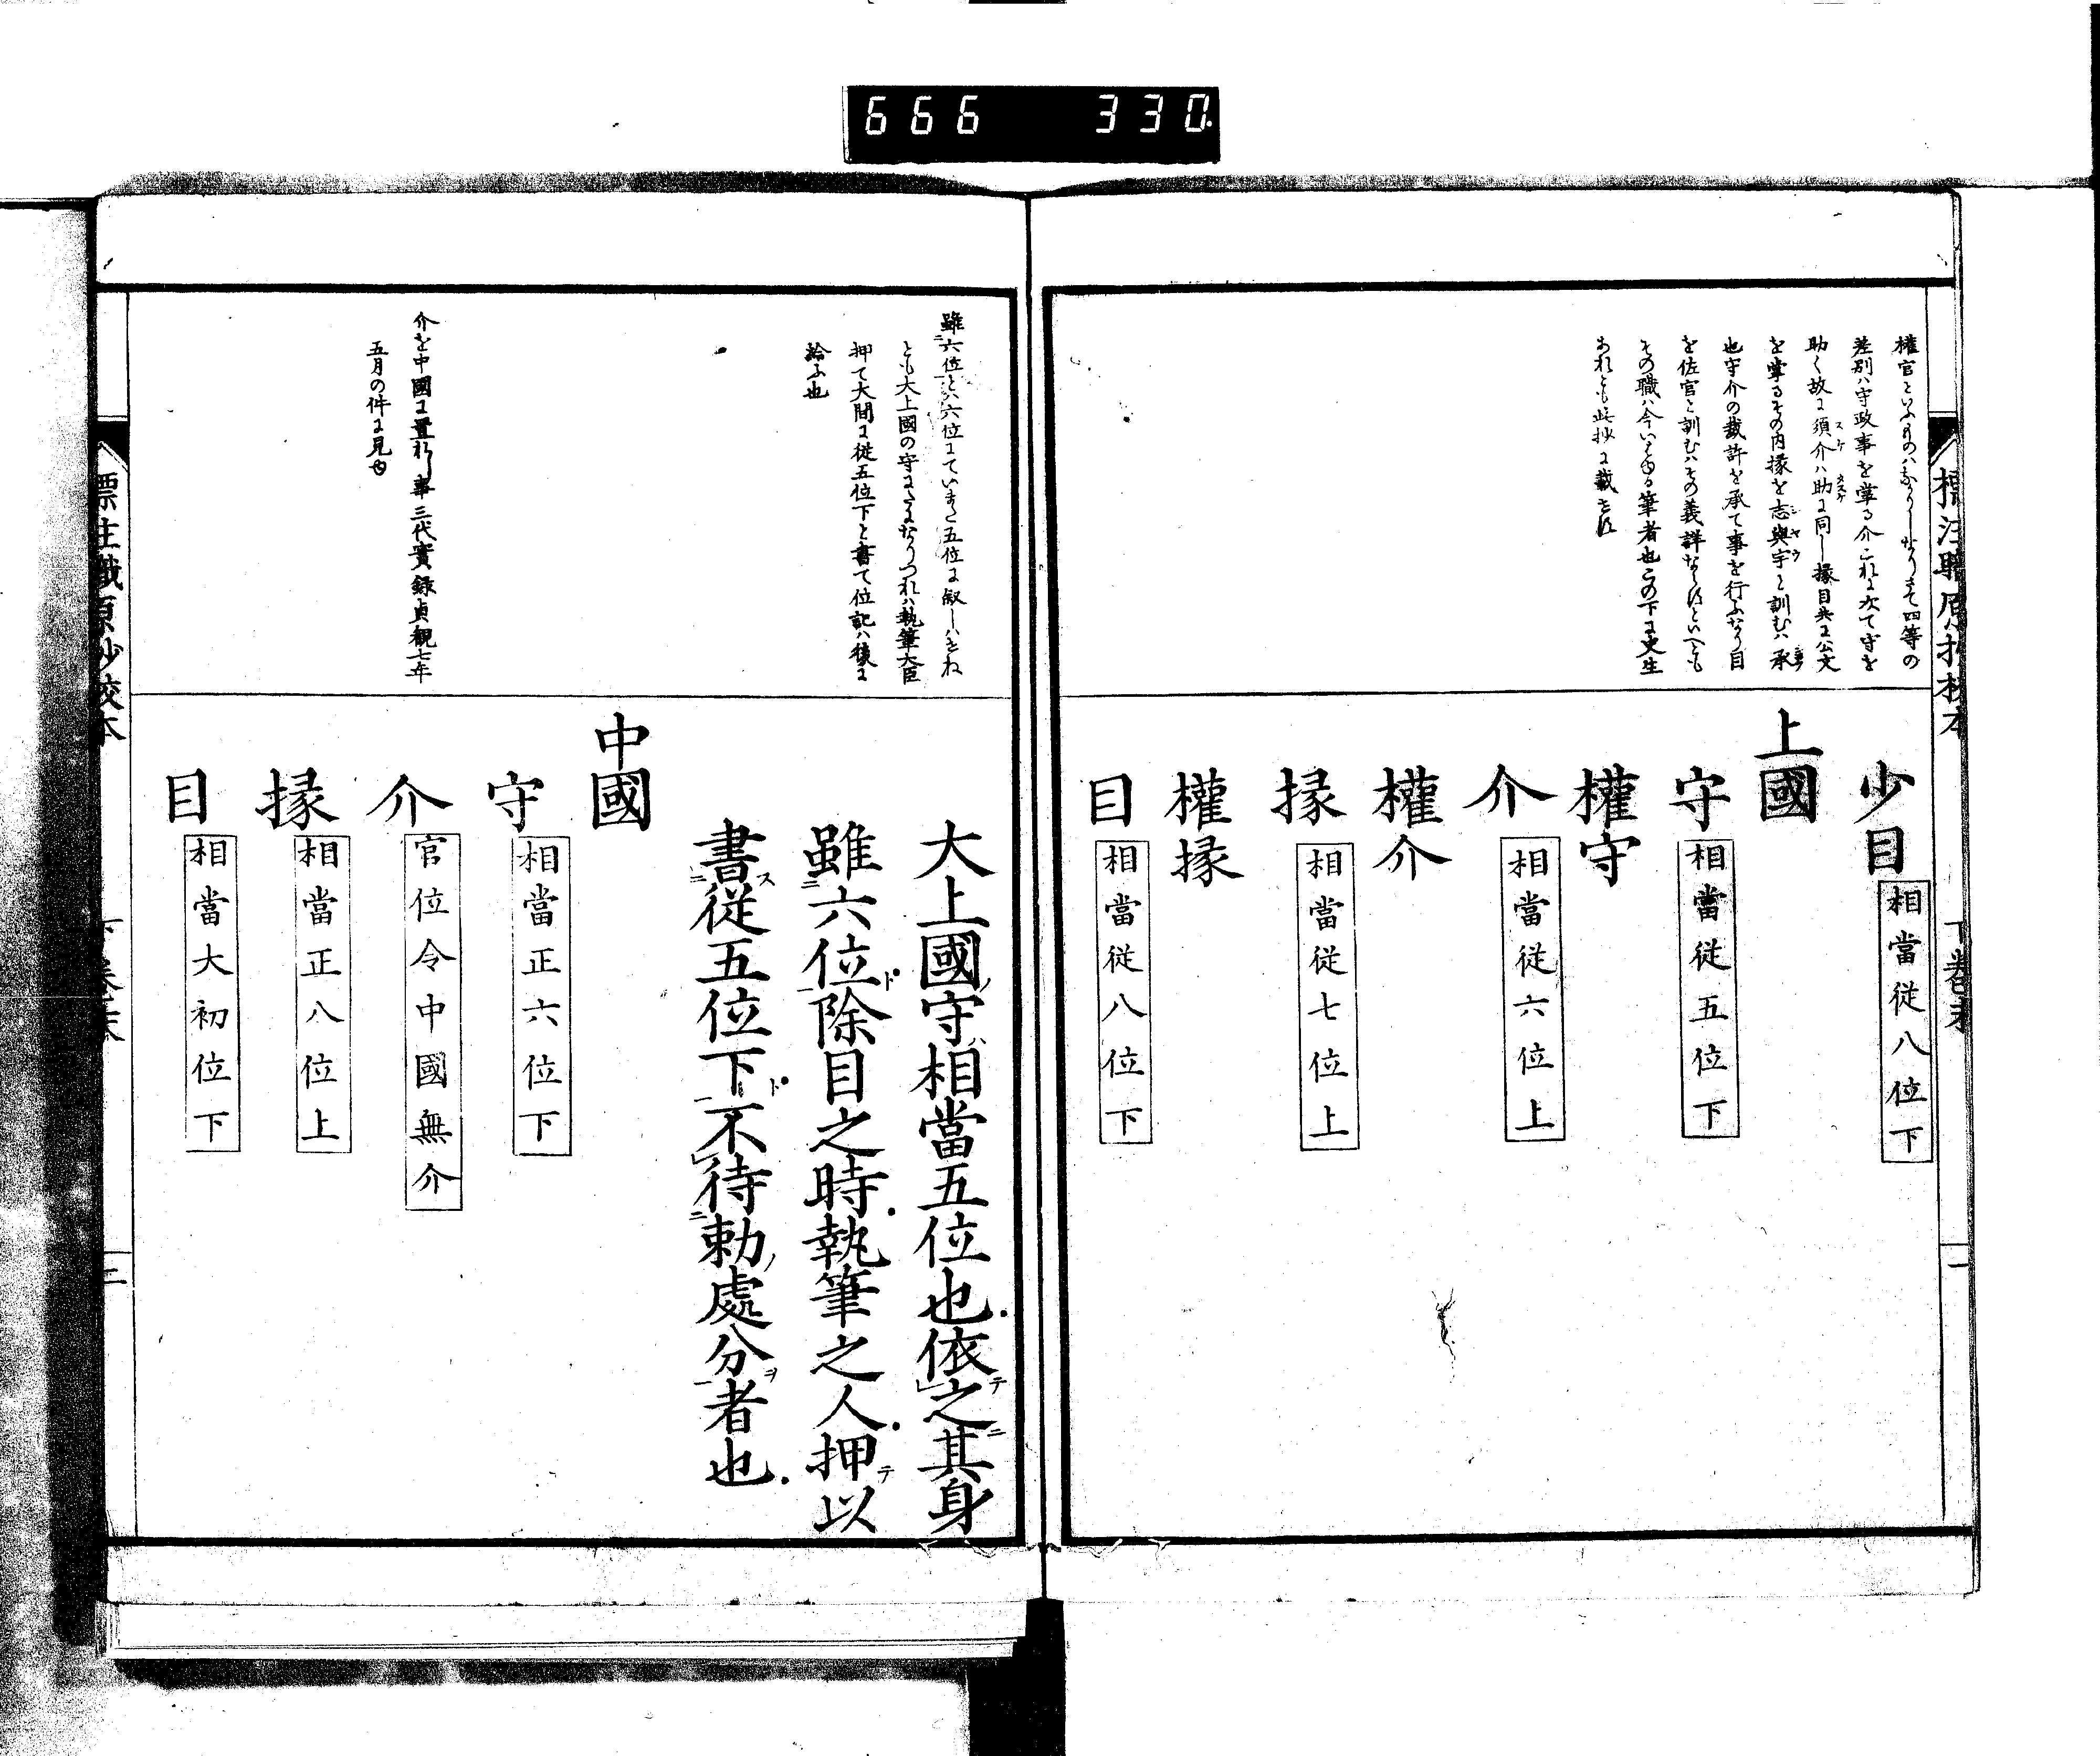 666 330
標注職原抄校本
下巻末
一
權官といふものハなかりしなりさて四等の
差別ハ守政事を掌る介これに次て守を
助く故に須介ハ助に同し掾目共に公文
を掌るその内掾を志與宇と訓むハ承
也守介の裁許を承て事を行ふなり目
を佐官と訓むハその義詳ならすといへとも
その職ハ今いはゆる筆者也この下に史生
あれとも此抄に載せす
少目 相當從八位下
上國
守 相當從五位下
權守
介 相當從六位上
權介
掾 相當從七位上
權掾
目 相當從八位下
雖六位とハ六位にていまた五位に叙しハせね
とも大上國の守になりつれハ執筆大臣
押て大間に從五位下と書て位記ハ後に
給ふ也
介を中國に置れし事三代實錄貞觀七年
五月の件に見ゆ
大上國ノ守ハ相當五位也依テ之ニ其身
雖六位ト除目之時執筆之人押テ以
書ス從五位下ト不待勅ノ處分ヲ者也
中國
守 相當正六位下
介 官位令中國無介
掾 相當正八位上
目 相當大初位下
標注職原抄校本
下巻末
二